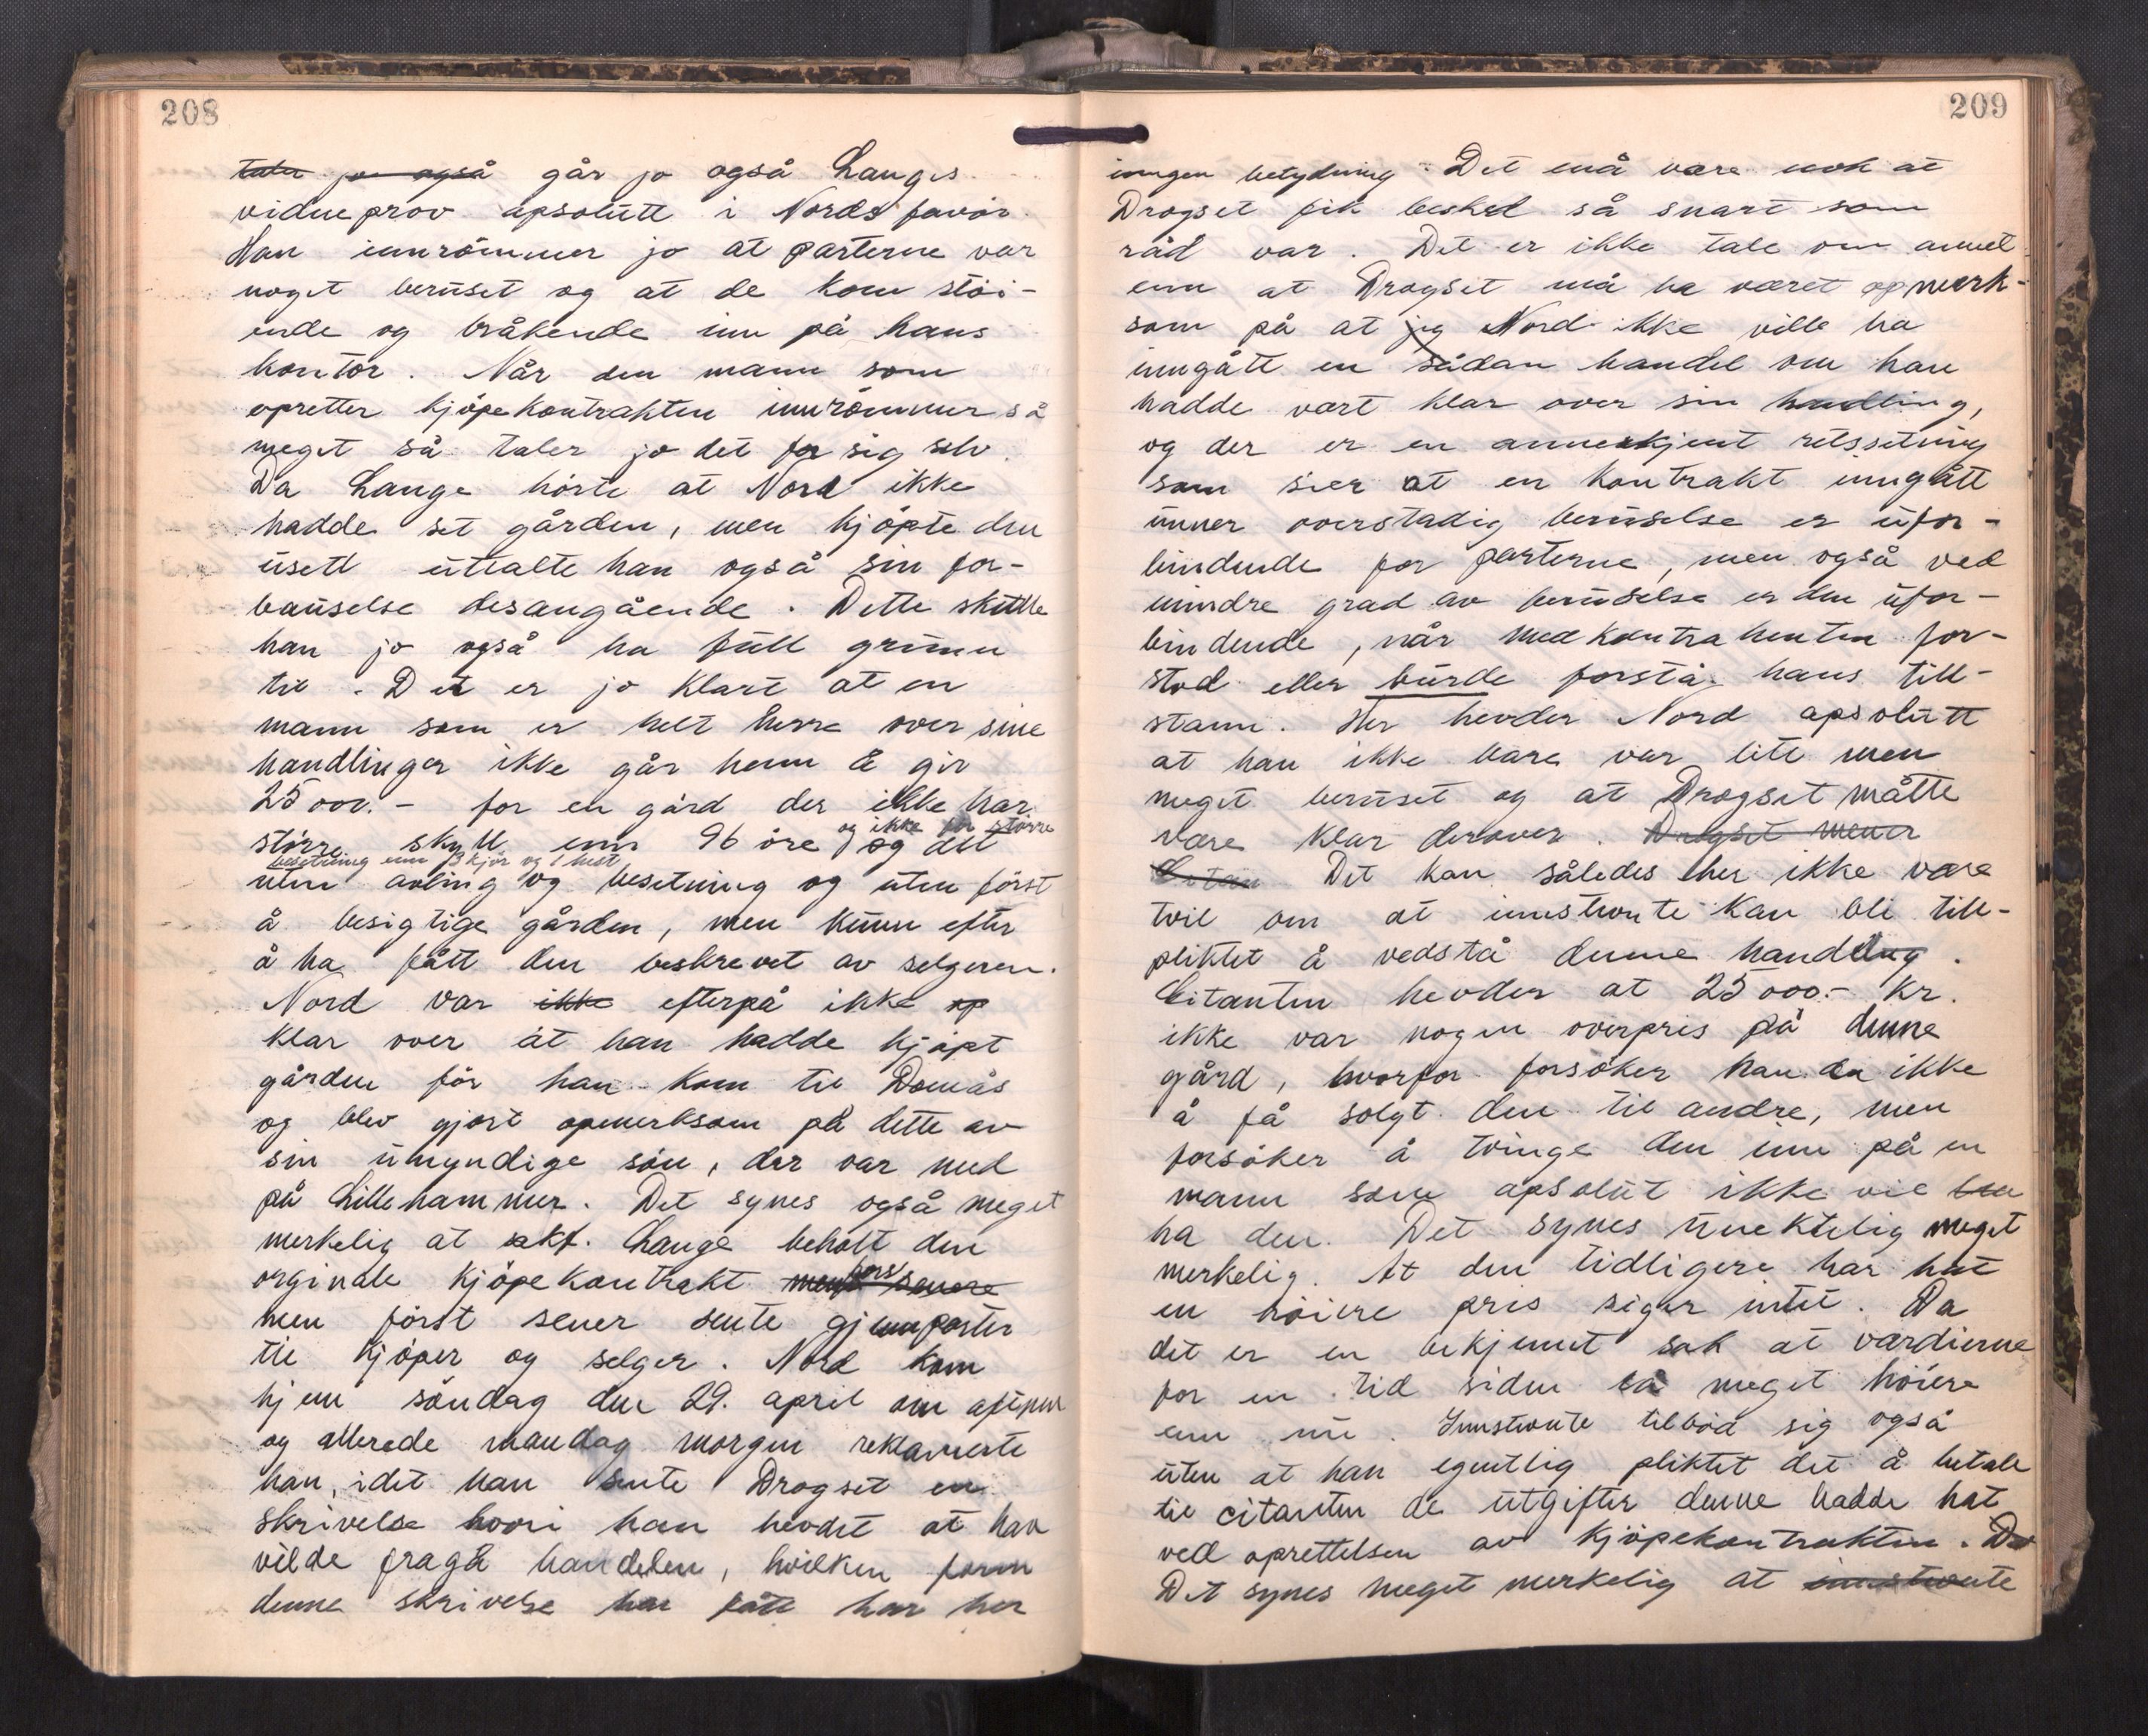 208
taler jo også går jo også Langes
vidneprov apsolutt i Nords favør.
Han innrömmer jo at parterne var
noget beruset og at de kom stöi-
ende og bråkende inn på hans
kontor. Når den mann som
opretter kjöpekontrakten innrömmer så
meget så taler jo det for sig selv.
Da Lange hörte at Nord ikke
hadde set gården, men kjöpte den
usett uttalte han også sin for-
bauselse desangående. Dette skulle
han jo også ha full grunn
til. Det er jo klart at en
mann som er helt herre over sine
handlinger ikke går henn & gir
25000.- for en gård der ikke har
og ikke for större
större skyll enn 96 öre og det
besetning enn 3 kjör og 1 hest
uten avling og besetning og uten först
å besigtige gården, men kunn efter
å ha fått den beskrevet av selgeren.
Nord var ikke efterpå ikke op
klar over at han hadde kjöpt
gården för han kom til Domås
og blev gjort opmerksom på dette av
sin umyndige sön, der var med
på Lillehammer. Det synes også meget
merkelig at sakf. Lange beholt den
orginale kjöpekontrakt men först senere
men först sener sente gjennparter
til kjöper og selger. Nord kom
hjem söndag den 29. april om aftenen
og allerede mandag morgen reklamerte
han, idet han sente Drogset en
skrivelse hvori han hevdet at han
vilde fragå handelen, hvilken form
denne skrivelse har fått har her
209
inngen betydning. Det må være nok at
Drogset fik besked så snart som
råd var. Det er ikke tale om annet
enn at Drogset må ha været opmerk-
som på at jeg Nord ikke ville ha
inngått en sådan handel om han
hadde vært klar over sin handling,
og der er en annerkjent retssetning
som sier at en kontrakt inngått
unner overstadig beruselse er ufor-
bindende for parterne, men også ved
mindre grad av beruselse er den ufor-
bindende, når medkontrahenten for-
stod eller burde forstå hans till-
stann. Her hevder Nord apsolutt
at han ikke bare var litt men
meget beruset og at Drogset måtte
være klar derover. Drogset mener
Citan Det kan således her ikke være
tvil om at innstevnte kan bli till-
pliktet å vedstå denne handling.
Citanten hevder at 25000.- kr.
ikke var nogen overpris på denne
gård, hvorfor forsöker han da ikke
å få solgt den til andre, men
forsöker å tvinge den inn på en
mann som apsolut ikke vil
ha den. Det synes unektelig meget
merkelig. At den tidligere har hat
en höiere pris siger intet. Da
det er en bekjennt sak at værdierne
for en tid siden lå meget höiere
enn nu. Innstevnte tilböd sig også
uten at han egentlig pliktet det å betale
til citanten de utgifter denne hadde hat
ved oprettelsen av kjöpekontrakten. De
Det synes meget merkelig at innstevnte